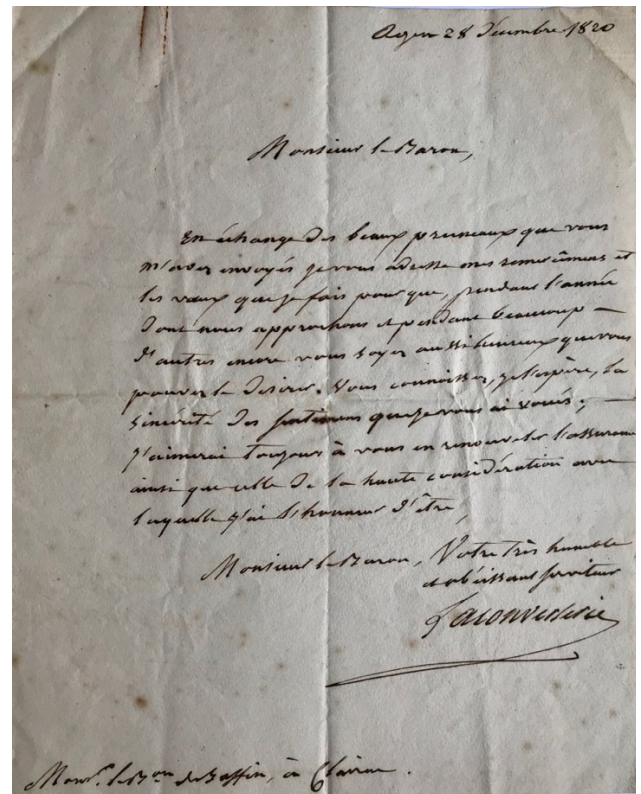 Agen 28 Décembre 1820
Monsieur le Baron,
En échange des beaux pruneaux que vous
m'avez envoyés je vous adresse mes remercîmens et
les vœux que je fais pour que, pendant l'année
dont nous approchons et pendant beaucoup —
d'autres encore vous soyez aussi heureux que vous
pouvez le désirer. Vous connaissez, je l'espère, la
sincérité des sentimens que je vous ai voués; —
J'aimerai toujours à vous en renouveler l'assurance
ainsi que celle de la haute considération avec
laquelle j'ai l'honneur d'être,
Monsieur le Baron, Votre très humble
et obéissant serviteur
Monsr. le Bon de , à Clairac.